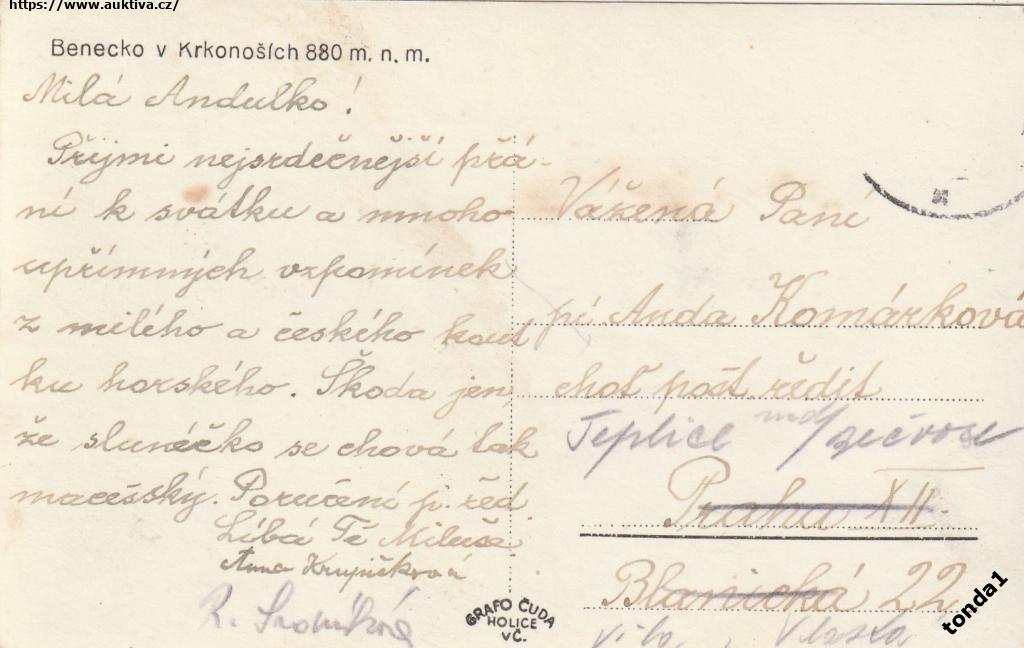 https://www.auktiva.cz/
Benecko v Krkonoších 880 m. n. m.
Milá Andulko!
Přijmi nejsrdečnější přá-
ní k svátku a mnoho
upřímných vzpomínek
z milého a českého kout
ku horského. Škoda jen,
že slunéčko se chová tak
macešsky. Poručení p. řed
Líbá Tě Miluše
Anna Krupičková
R.
Vážená Paní
pí Anda Komárková
choť pošt. ředit
Teplice
Praha XII.
Blanická 22
Vila Vlasta
GRAFO ČUDA
HOLICE
v Č.
tonda1